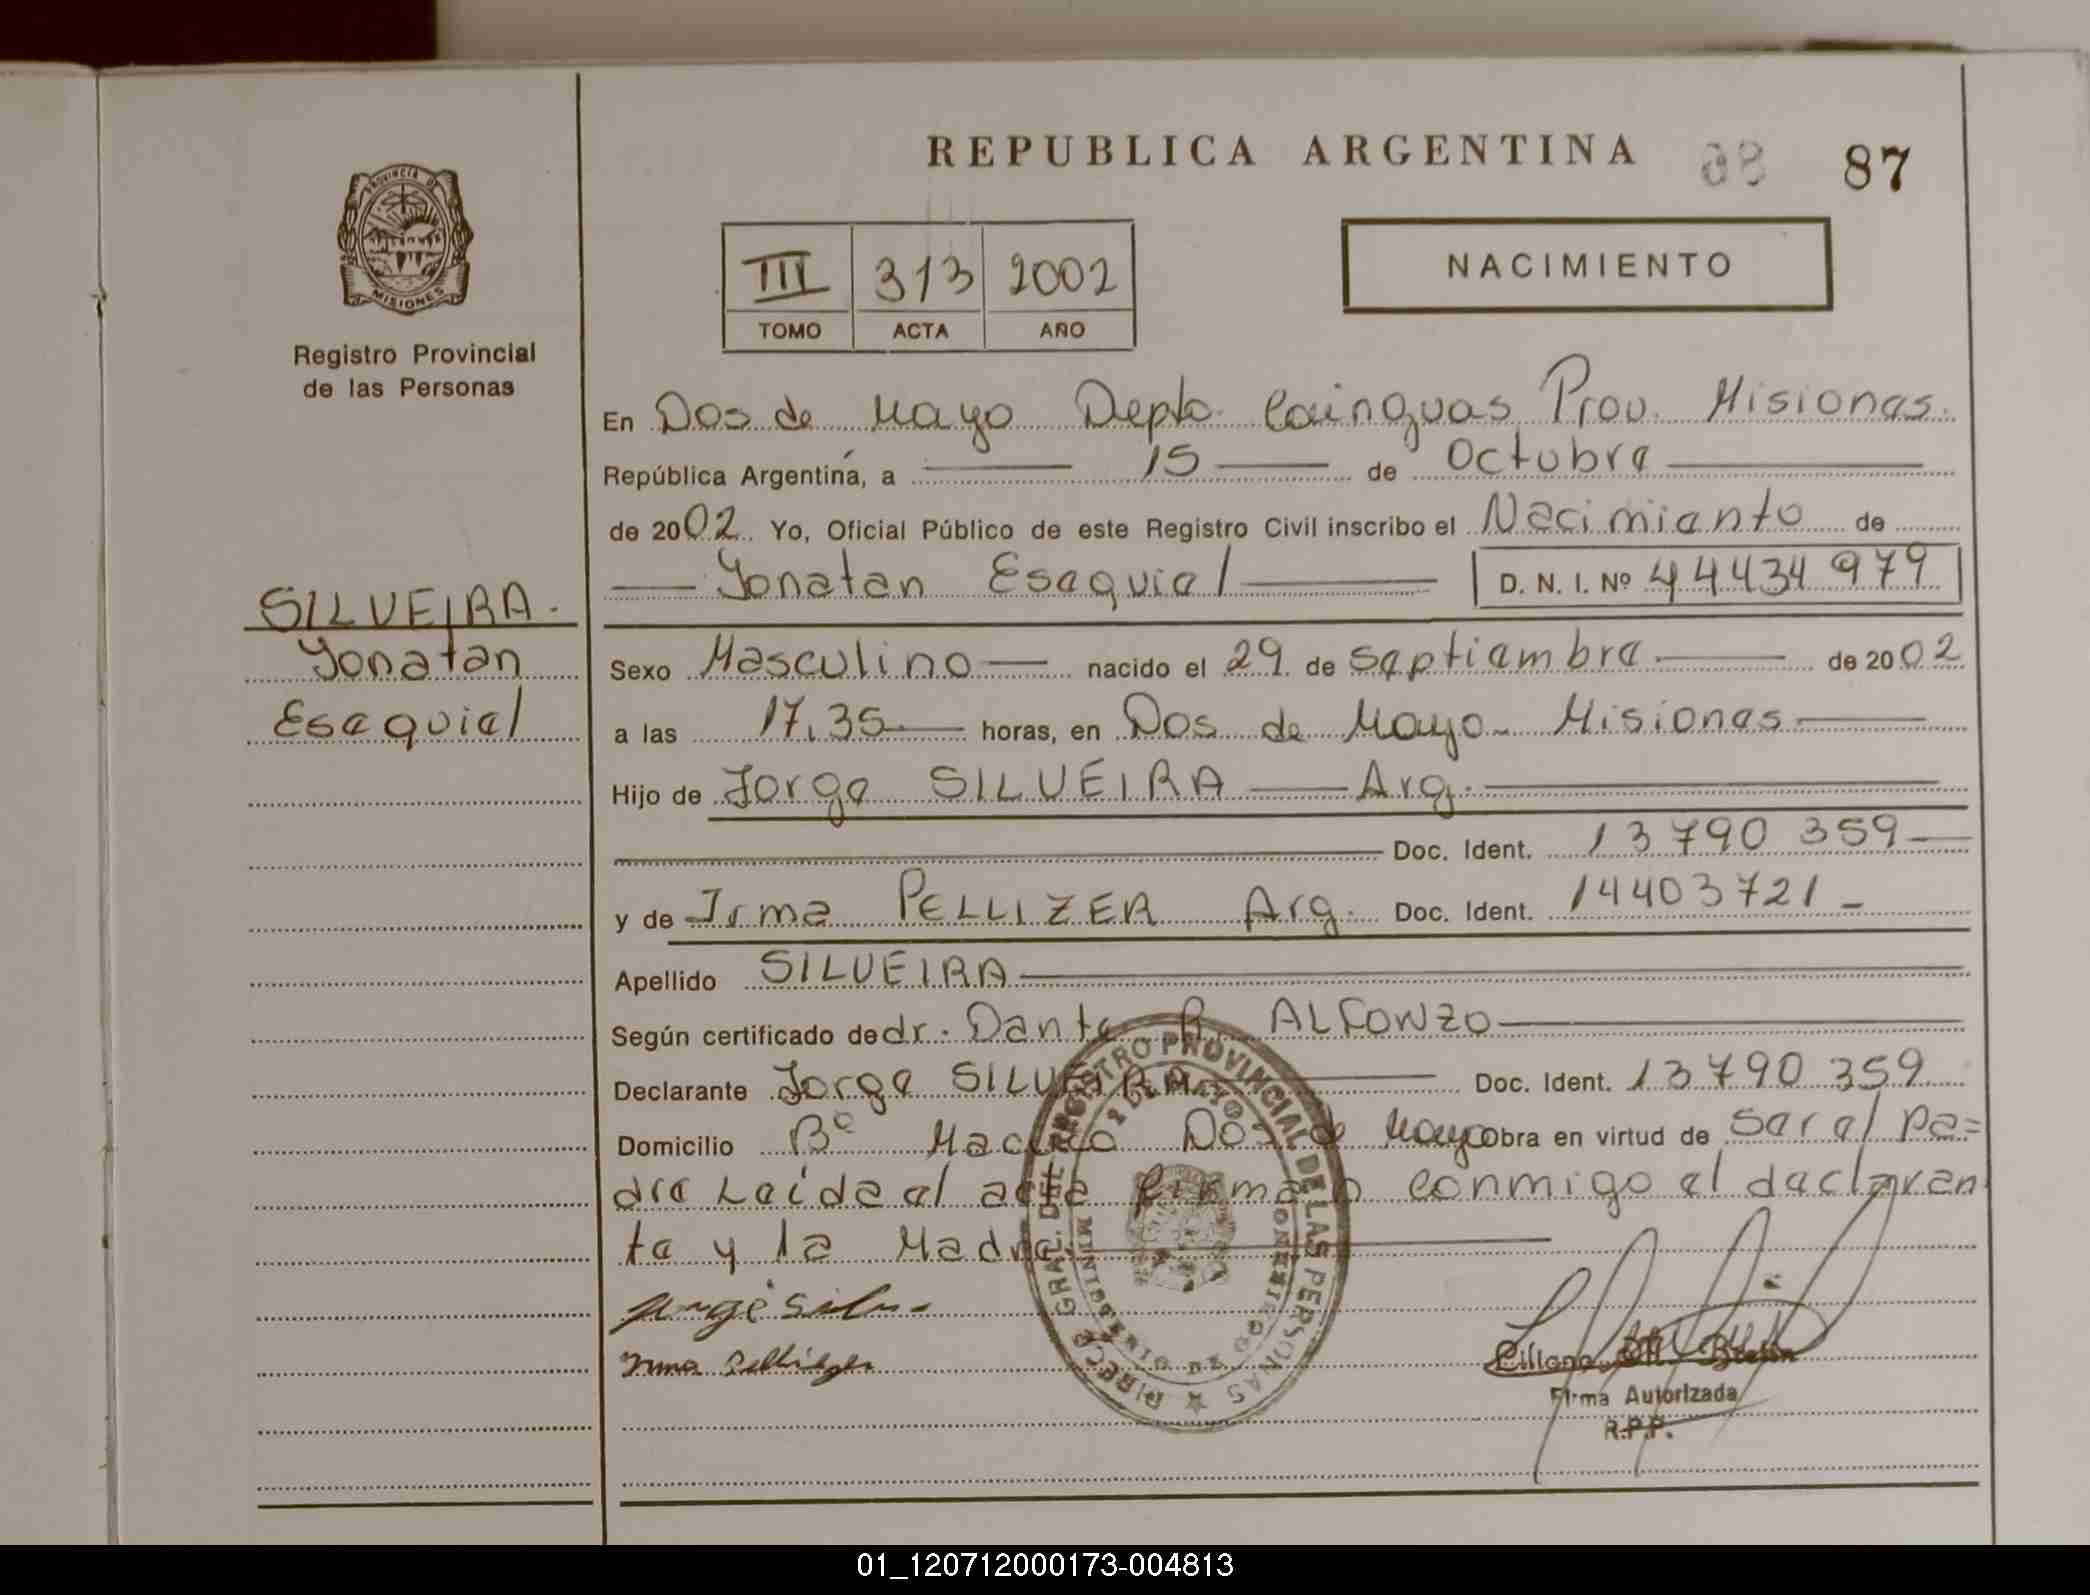 REPUBLICA ARGENTINA 87
PROVINCIA DE
MISIONES
Registro Provincial
de las Personas
III 313 2002
TOMO ACTA AÑO
NACIMIENTO
En Dos de Mayo Depto. Cainguas Prov. Misiones.
República Argentina, a 15 de Octubre
de 2002. Yo, Oficial Público de este Registro Civil inscribo el Nacimiento de
Yonatan Esequiel D. N. I. Nº 44434979
SILVEIRA.
Yonatan
Esequiel
Sexo Masculino nacido el 29 de septiembre de 2002
a las 17,35 horas, en Dos de Mayo - Misiones
Hijo de Jorge SILVEIRA Arg.
Doc. Ident. 13790359
y de Irma PELLIZER Arg. Doc. Ident. 14403721
Apellido SILVEIRA
Según certificado de dr. Dante R. ALFONZO
Declarante Jorge SILVEIRA Doc. Ident. 13790359
Domicilio Bº Dos de Mayo obra en virtud de ser el pa=
dre Leída el acta firman conmigo el declaran
te y la Madre.
DIRECC. GRAL. DEL REGISTRO PROVINCIAL DE LAS PERSONAS
2 DE MAYO
Jorge Silv
Irma Pellizer
Firma Autorizada
R.P.P.
01_120712000173-004813